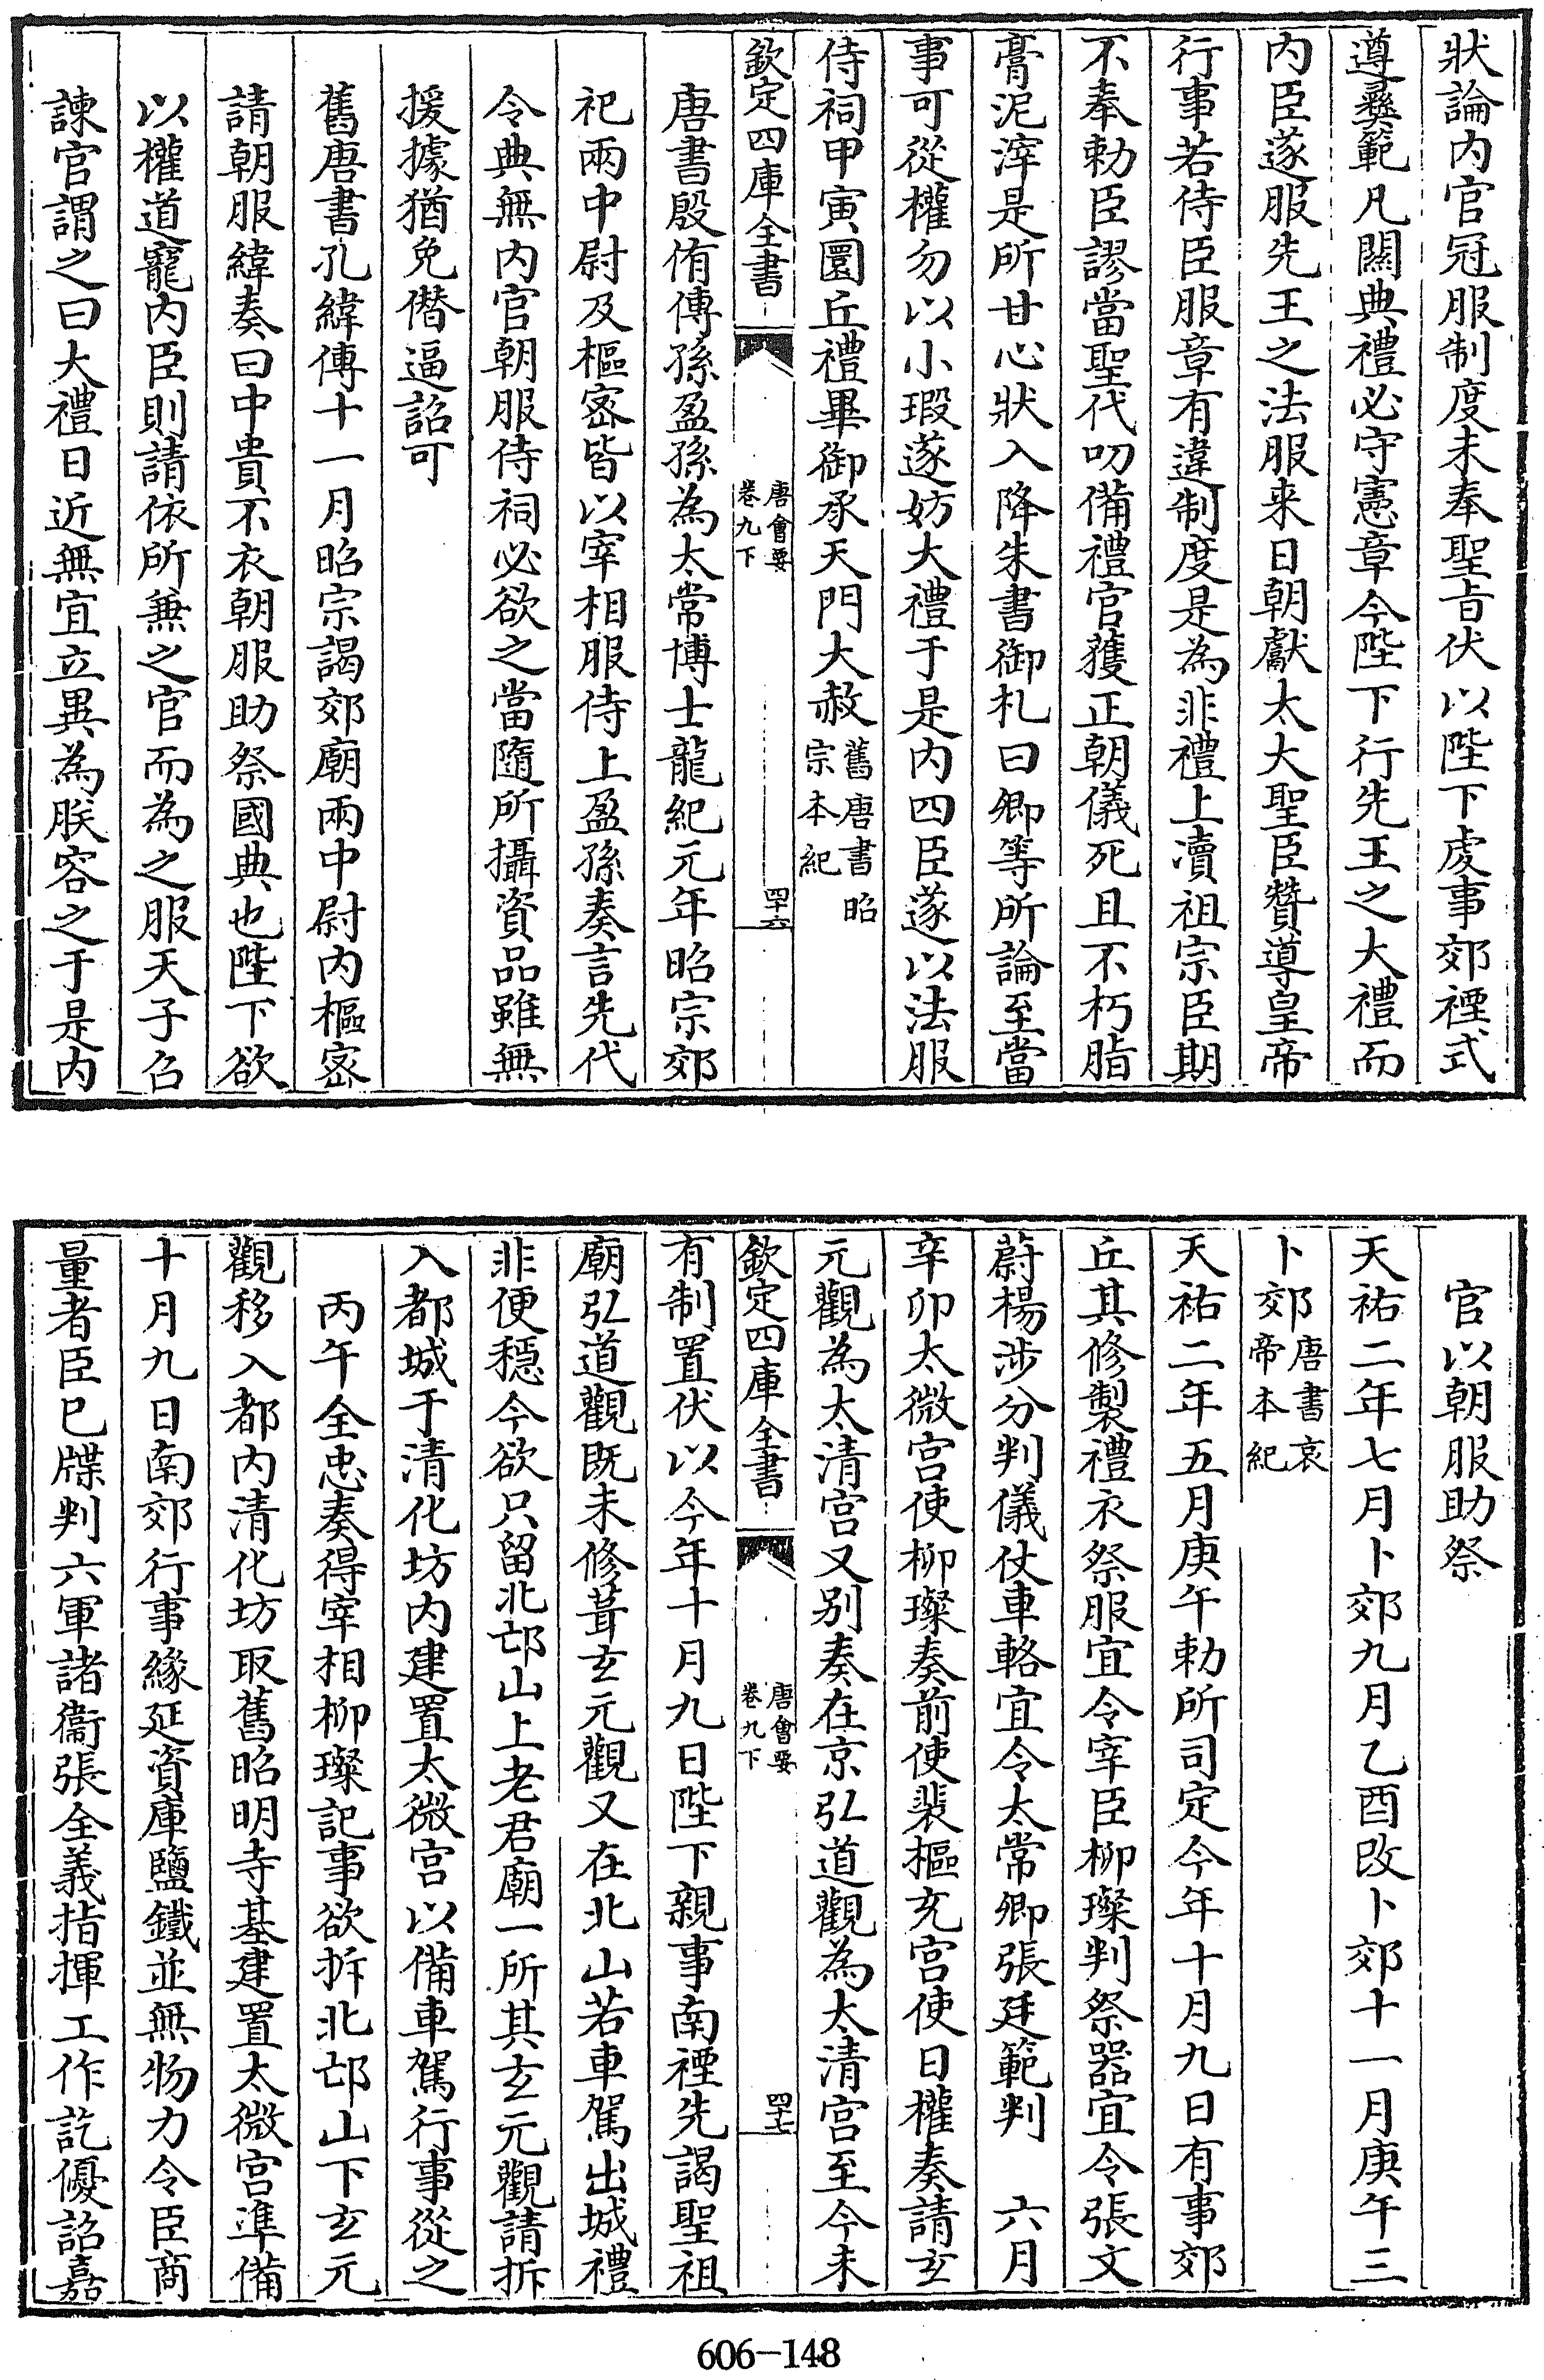 狀論内官冠服制度未奉聖旨伏以陛下虔事郊禋式
遵彞範凡關典禮必守憲章今陛下行先王之大禮而
内臣遂服先王之法服来日朝獻太大聖臣贊導皇帝
行事若侍臣服章有違制度是為非禮上瀆祖宗臣期
不奉勅臣謬當聖代叨備禮官獲正朝儀死且不朽脂
膏泥滓是所甘心狀入降朱書御札曰卿等所論至當
事可從權勿以小瑕遂妨大禮于是内四臣遂以法服
侍祠甲寅圜丘禮畢御承天門大赦舊唐書昭宗本紀
欽定四庫全書 唐會要卷九下 四十六
唐書殷侑傳孫盈孫為太常博士龍紀元年昭宗郊
祀兩中尉及樞宻皆以宰相服侍上盈孫奏言先代
令典無内官朝服侍祠必欲之當隨所攝資品雖無
援據猶免僭逼詔可
舊唐書孔緯傳十一月昭宗謁郊廟兩中尉内樞宻
請朝服緯奏曰中貴不衣朝服助祭國典也陛下欲
以權道寵内臣則請依所兼之官而為之服天子召
諫官謂之曰大禮日近無宜立異為朕容之于是内
官以朝服助祭
天祐二年七月卜郊九月乙酉改卜郊十一月庚午三
卜郊唐書哀帝本紀
天祐二年五月庚午勅所司定今年十月九日有事郊
丘其修製禮衣祭服宜令宰臣柳璨判祭器宜令張文
蔚楊涉分判儀仗車輅宜令太常卿張廷範判 六月
辛卯太微宫使柳璨奏前使裴樞充宫使日權奏請玄
元觀為太清宫又别奏在京弘道觀為太清宫至今未
欽定四庫全書 唐會要卷九下 四十七
有制置伏以今年十月九日陛下親事南禋先謁聖祖
廟弘道觀既未修葺玄元觀又在北山若車駕出城禮
非便穩今欲只留北邙山上老君廟一所其玄元觀請拆
入都城于清化坊内建置太微宫以備車駕行事從之
丙午全忠奏得宰相柳璨記事欲拆北邙山下玄元
觀移入都内清化坊取舊昭明寺基建置太微宫準備
十月九日南郊行事緣延資庫鹽鐵並無物力令臣商
量者臣已牒判六軍諸衞張全義指揮工作訖優詔嘉
606-148